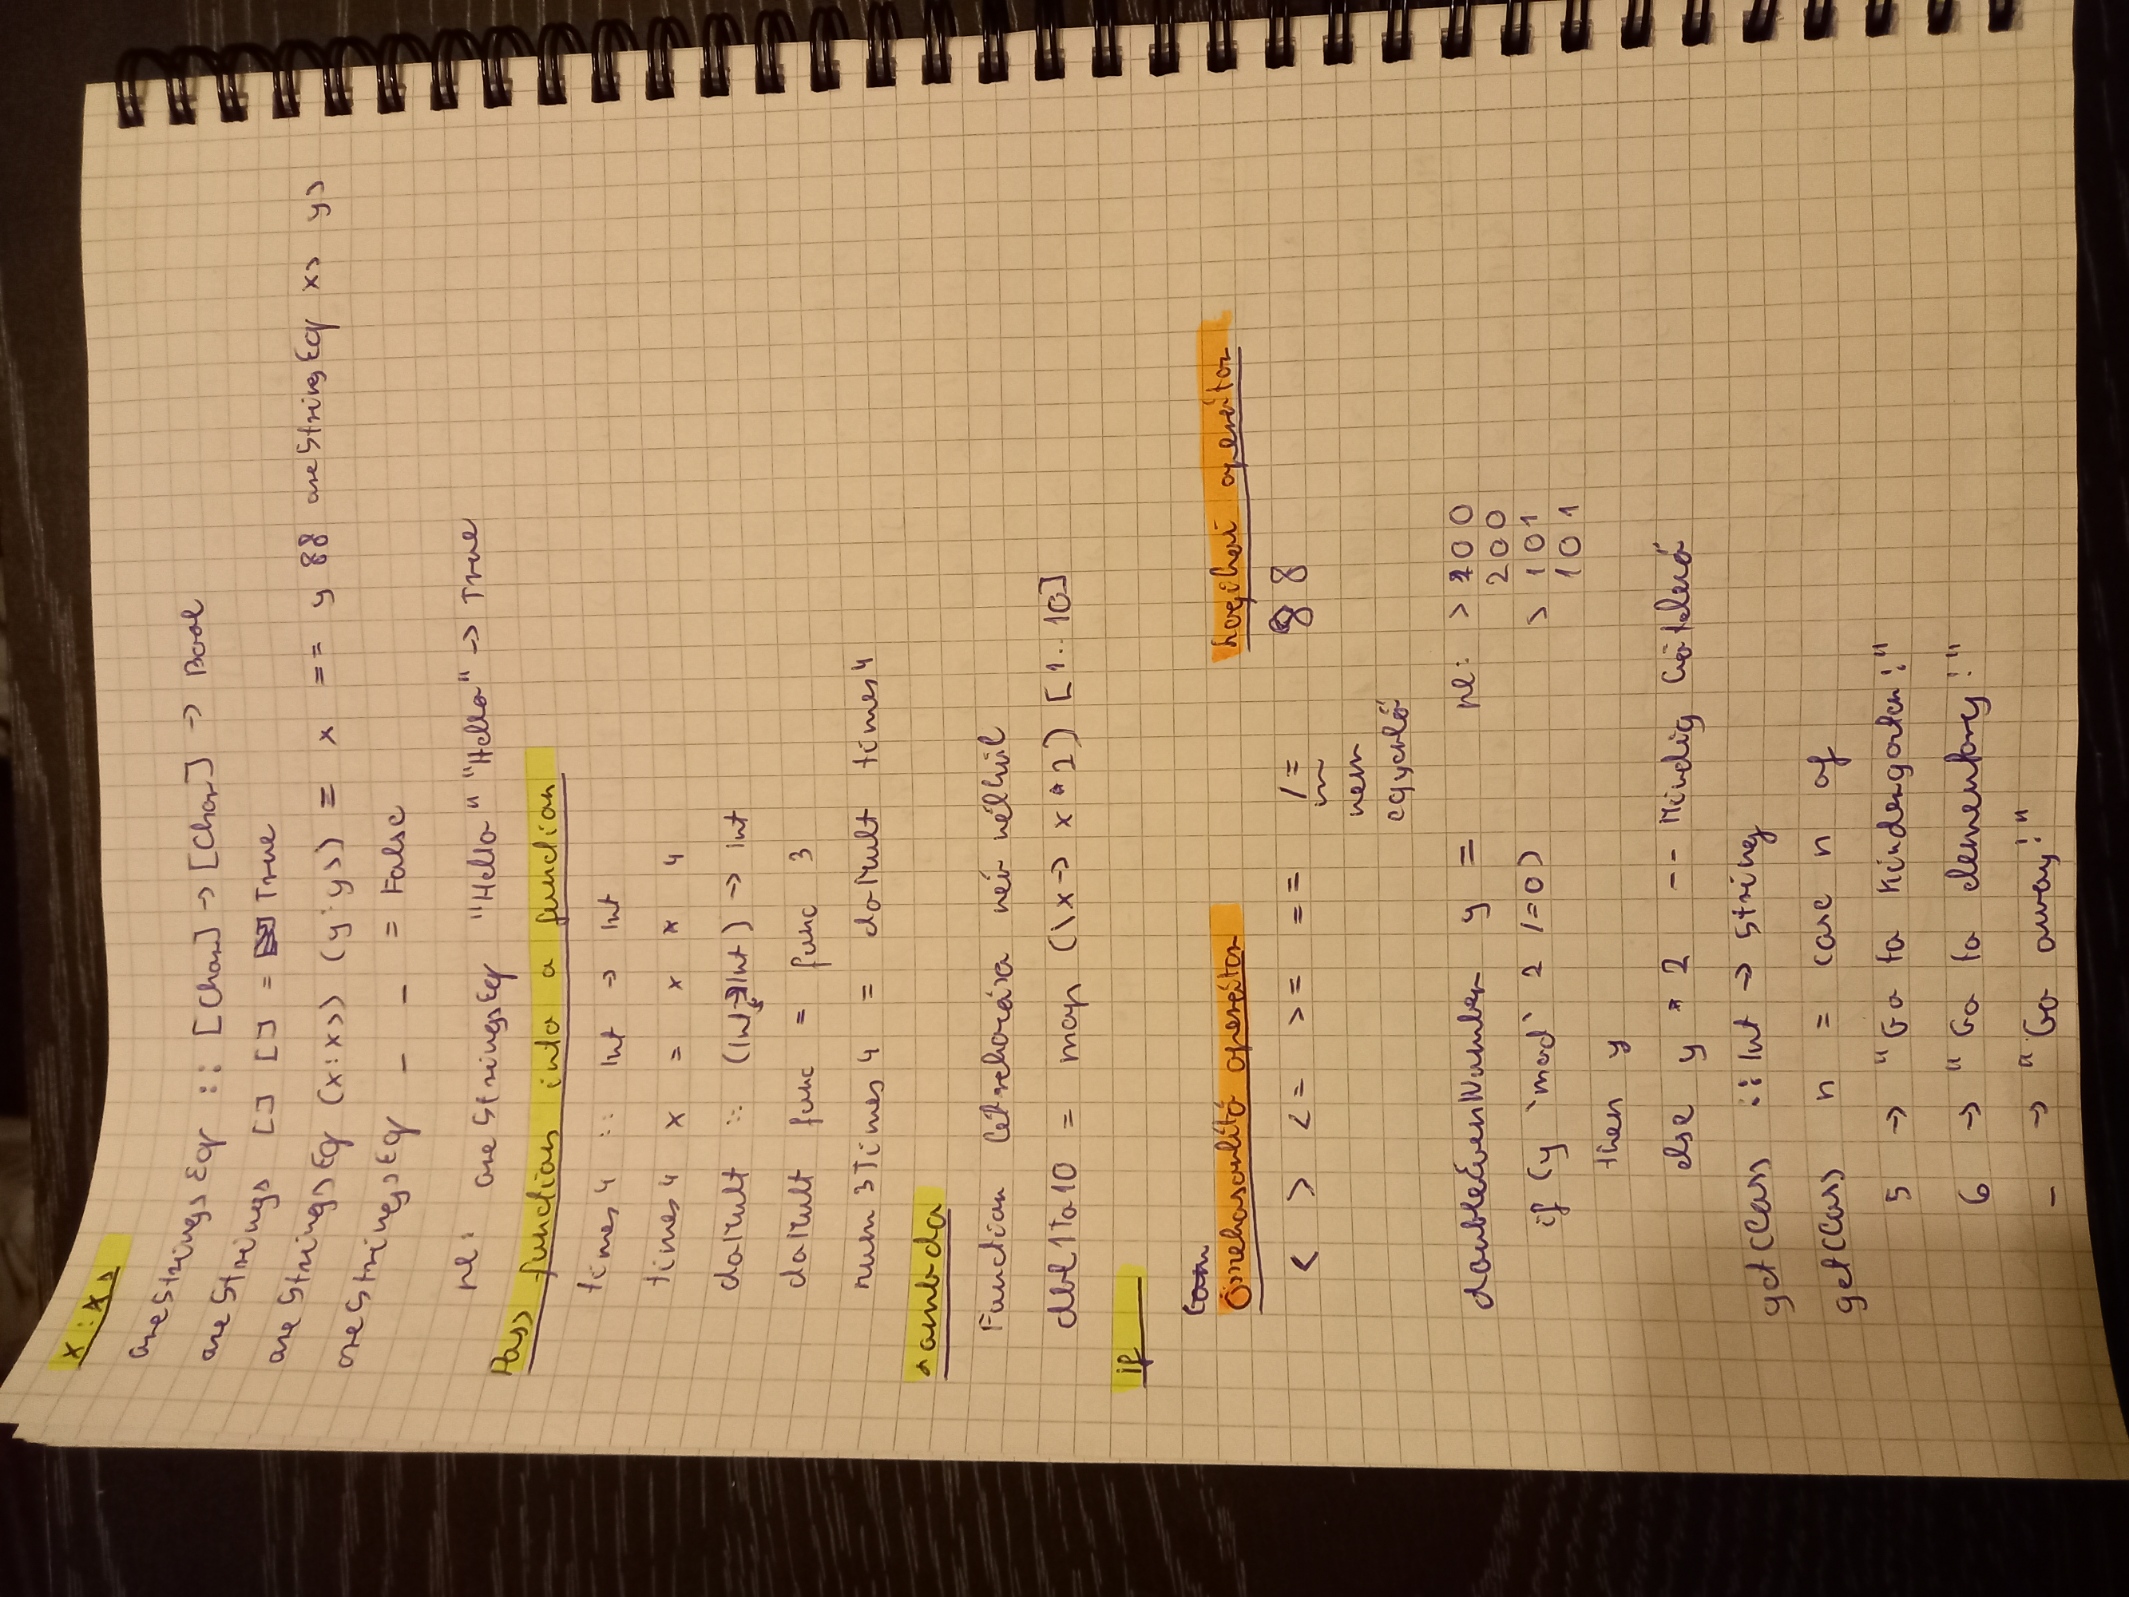 x:xs
areStringsEq :: [Char] -> [Char] -> Bool
areStrings [] [] = True
areStringsEq (x:xs) (y:ys) = x == y && areStringEq xs ys
areStringsEq _ _ = False
pl: areStringsEq "Hello" "Hello" -> True
Pass function into a function
times4 :: Int -> Int
times4 x = x * 4
doMult :: (Int->Int) -> int
doMult func = func 3
num3Times4 = doMult times4
Lambda
Function létrehozása név nélkül
dbl1To10 = map (\x-> x*2) [1..10]
if
Összehasonlító operátor Logikai operátor
< > <= >= == /= &&
nem
egyenlő
doubleEvenNumber y = pl: > 100
200
if (y `mod` 2 /=0) > 101
101
then y
else y * 2 -- Mindig kötelező
getClass :: Int -> String
getClass n = case n of
5 -> "Go to Kindergarten!"
6 -> "Go to elementary!"
_ -> "Go away!"